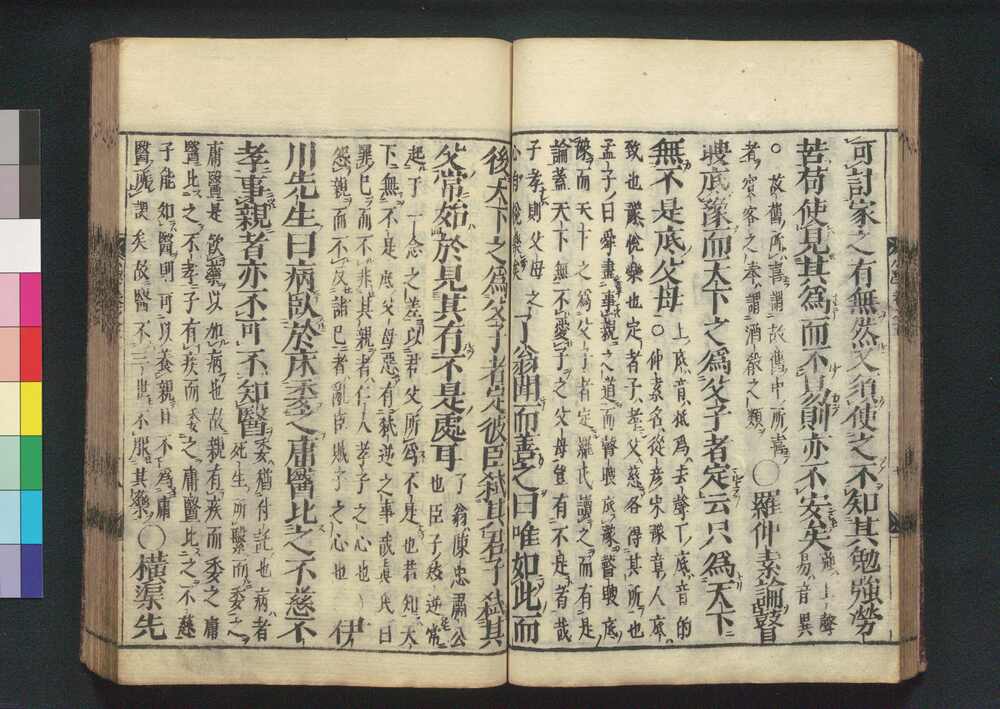 可計家之有無然又須使之不知其勉強勞
苦苟使見其爲而不易則亦不安矣
強上聲
易音異
○故舊所喜謂故舊中所喜
者賓客之奉謂酒殽之類
○羅仲素論瞽
瞍底豫而天下之爲父子者定云只爲天下
無不是底父母
上底音抵爲去聲下底音的
○仲素名從彥宋豫章人底
致也豫悅樂也定者子孝父慈各得其所也
孟子曰舜盡事親之道而瞽瞍底豫瞽瞍底
豫而天下之爲父子者定羅氏讀之而有是
論蓋天下無不愛子之父母豈有不是者哉
子孝則父母之
心自悅樂矣
了翁聞而善之曰唯如此而
後天下之爲父子者定彼臣弒其君子弒其
父常始於見其有不是處耳
了翁陳忠肅公
也臣子弒逆常
起于一念之差以君父所爲不是也若知天
下無不是底父母惡有弒逆之事哉眞氏曰
罪己而不非其親者仁人孝子之心也
怨親而不反諸己者亂臣賊子之心也
伊
川先生曰病臥於床委之庸醫比之不慈不
孝事親者亦不可不知醫
委猶付託也病者
死生所繫而委之
庸醫是飲藥以加病也故親有疾而委之庸
醫比之不孝子有疾而委之庸醫比之不慈
子能知醫則可以養親不爲庸
醫所誤矣故醫不三世不服其藥
○橫渠先